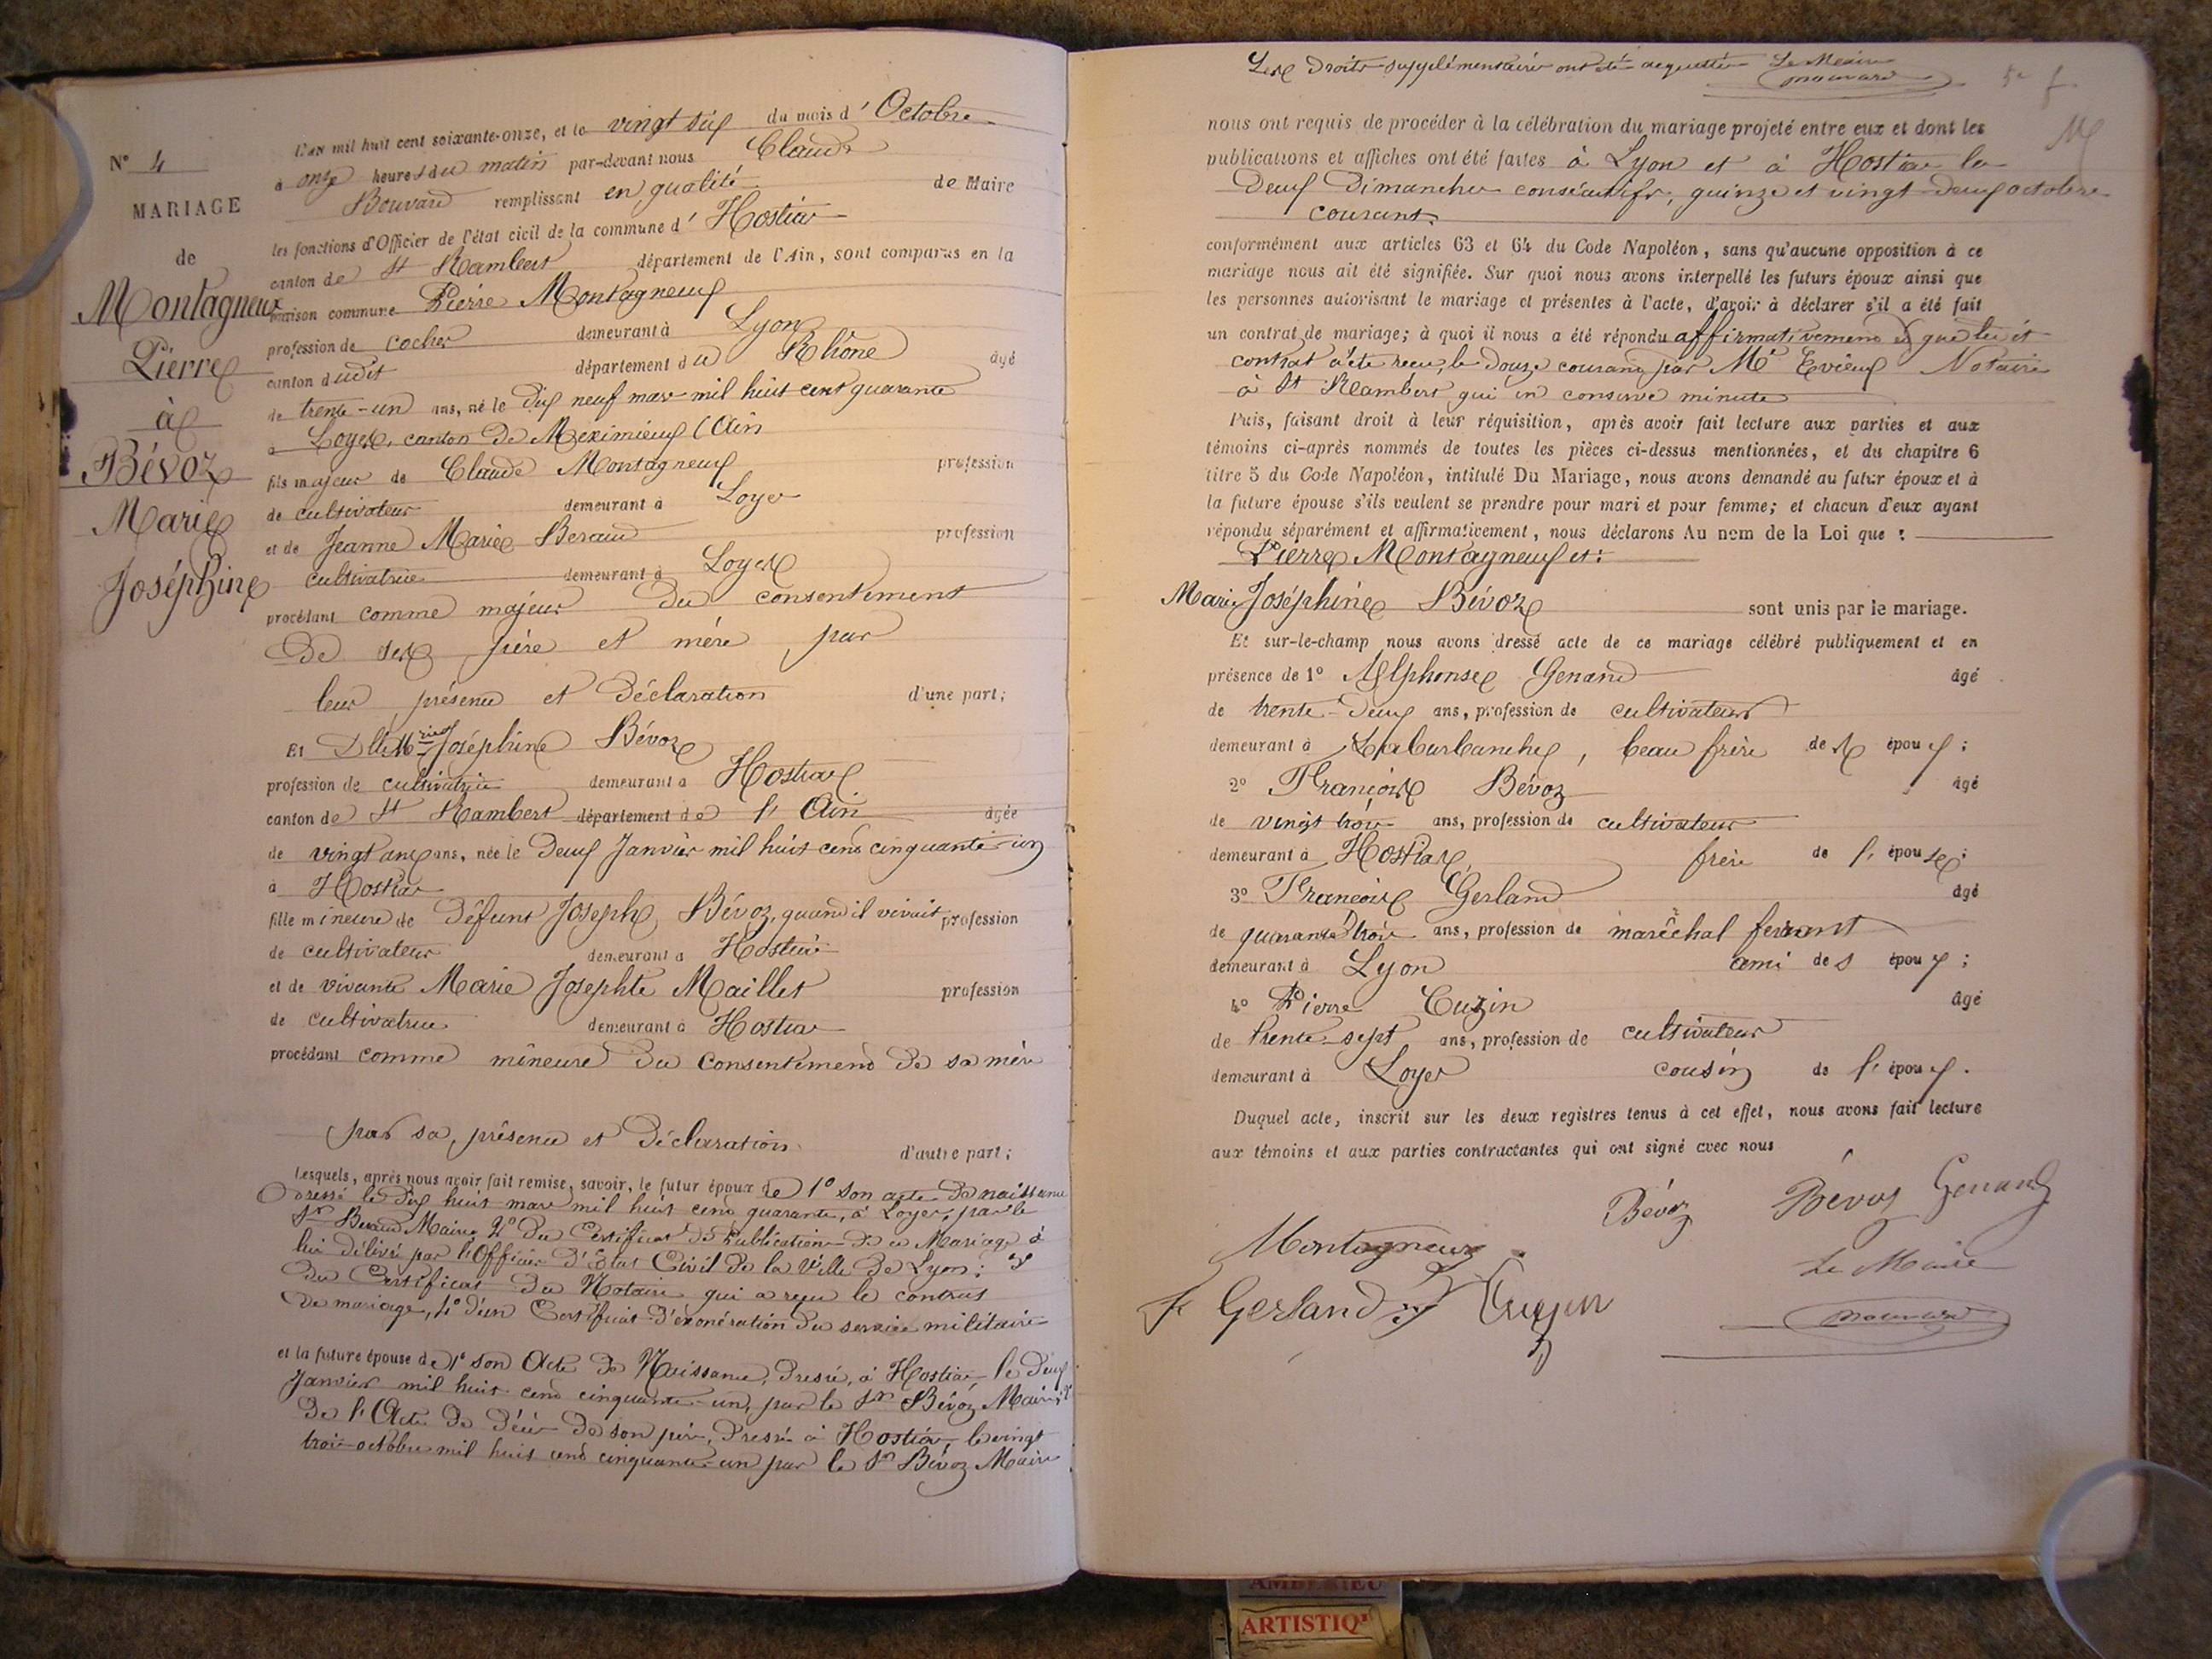 N° 4
MARIAGE
de
Montagneux
Pierre
à
Bévoz
Marie
Joséphine
L'an mil huit cent soixante-onze, et le vingt six du mois d'Octobre
à onze heures du matin par-devant nous Claude
Bouvard remplissant en qualité de Maire
les fonctions d'Officier de l'état civil de la commune d'Hostias
canton de St Rambert département de l'Ain, sont comparus en la
maison commune Pierre Montagneux
profession de cocher demeurant à Lyon
canton dudit département du Rhône âgé
de trente-un ans, né le dix neuf mars mil huit cent quarante
à Loyes, canton de Meximieux (Ain
fils majeur de Claude Montagneux profession
de cultivateur demeurant à Loyes
et de Jeanne Marie Beraud profession
cultivatrice demeurant à Loyes
procédant comme majeur du consentement
de ses père et mère par
leur présence et déclaration d'une part;
Et Dlle Mrie Joséphine Bévoz
profession de cultivatrice demeurant à Hostias
canton de St Rambert département de l'Ain âgée
de vingt ans, née le deux Janvier mil huit cent cinquante-un
à Hostias
fille mineure de défunt Joseph Bévoz, quand il vivait profession
de cultivateur demeurant à Hostias
et de vivante Marie Josephte Maillet profession
de cultivatrice demeurant à Hostias
procédant comme mineure du consentement de sa mère
par sa présence et déclaration d'autre part;
Lesquels, après nous avoir fait remise, savoir, le futur époux de 1° son acte de naissance
dressé le dix huit mars mil huit cent quarante, à Loyes, par le
Sr Beraud Maire, 2° du Certificat de Publication de ce Mariage à
lui délivré par l'Officier d'Etat Civil de la Ville de Lyon; 3°
du Certificat du Notaire qui a reçu le contrat
de mariage, 4° d'un Certificat d'exonération du service militaire
et la future épouse de 1° son Acte de Naissance, dressé, à Hostias, le deux
Janvier mil huit cent cinquante-un, par le Sr Bévoz Maire, 2°
de l'Acte de décès de son père, dressé à Hostias, le vingt
trois octobre mil huit cent cinquante-un par le Sr Bévoz Maire
Les droits supplémentaires ont été acquittés Le Maire
Bouvard
nous ont requis de procéder à la célébration du mariage projeté entre eux et dont les
publications et affiches ont été faites à Lyon et à Hostias les
deux Dimanches consécutifs, quinze et vingt-deux octobre
courant.
conformément aux articles 63 et 64 du Code Napoléon, sans qu'aucune opposition à ce
mariage nous ait été signifiée. Sur quoi nous avons interpellé les futurs époux ainsi que
les personnes autorisant le mariage et présentes à l'acte, d'avoir à déclarer s'il a été fait
un contrat de mariage; à quoi il nous a été répondu affirmativement et que ledit
contrat a été reçu, le douze courant par Me Evieux Notaire
à St Rambert qui en conserve minute
Puis, faisant droit à leur réquisition, après avoir fait lecture aux parties et aux
témoins ci-après nommés de toutes les pièces ci-dessus mentionnées, et du chapitre 6
titre 5 du Code Napoléon, intitulé Du Mariage, nous avons demandé au futur époux et à
la future épouse s'ils veulent se prendre pour mari et pour femme; et chacun d'eux ayant
répondu séparément et affirmativement, nous déclarons Au nom de la Loi que :
Pierre Montagneux et:
Marie Joséphine Bévoz sont unis par le mariage.
Et sur-le-champ nous avons dressé acte de ce mariage célébré publiquement et en
présence de 1° Alphonse Genand âgé
de trente-deux ans, profession de cultivateur
demeurant à Laburbanche, beau frère des époux;
2° François Bévoz âgé
de vingt trois ans, profession de cultivateur
demeurant à Hostias, frère de l'épouse;
3° François Gerland âgé
de quarante trois ans, profession de maréchal ferrant
demeurant à Lyon ami des époux;
4° Pierre Cuzin âgé
de trente-sept ans, profession de cultivateur
demeurant à Loyes cousin de l'époux.
Duquel acte, inscrit sur les deux registres tenus à cet effet, nous avons fait lecture
aux témoins et aux parties contractantes qui ont signé avec nous
Bévoz Bévoz Genand
Montagneux
Le Maire
f Gerland Cuzin
Bouvard
AMBERIEU
ARTISTIQ